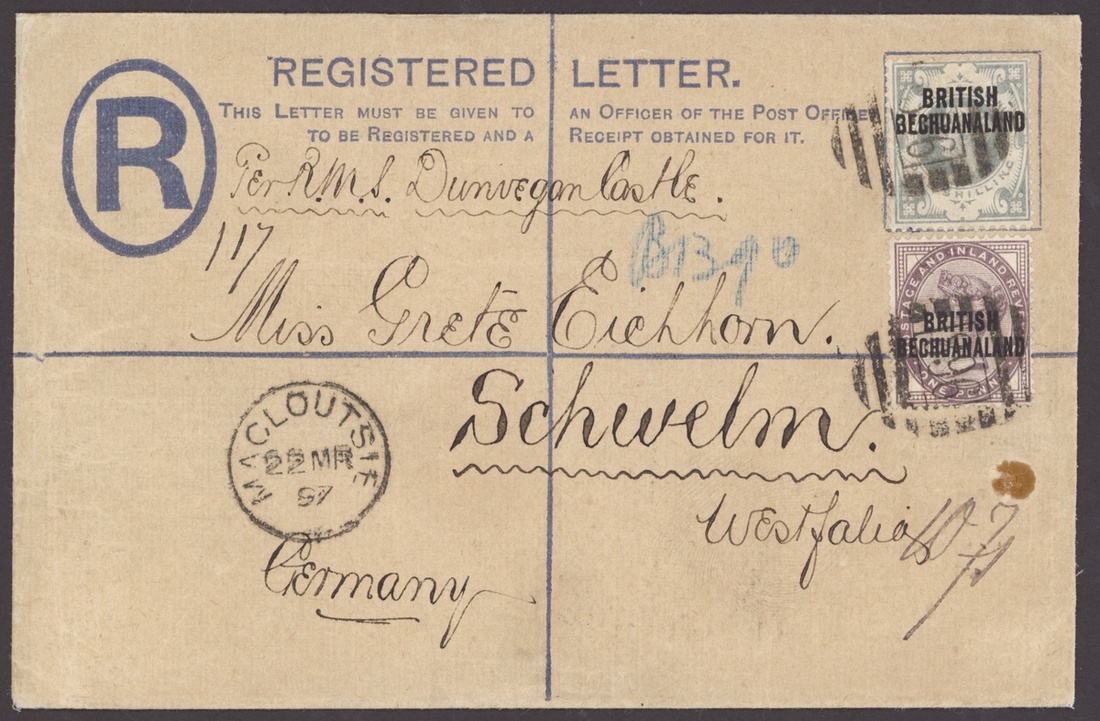 R
REGISTERED LETTER.
THIS LETTER MUST BE GIVEN TO AN OFFICER OF THE POST OFFICE
TO BE REGISTERED AND A RECEIPT OBTAINED FOR IT.
Per R.M.S. Dunvegan Castle.
117
Miss Grete Eichhorn.
Schwelm.
Westfalia
Germany
MACLOUTSIE
22 MR
97
BRITISH
BECHUANALAND
SHILLING
POSTAGE AND INLAND REV
BRITISH
BECHUANALAND
ONE PENNY